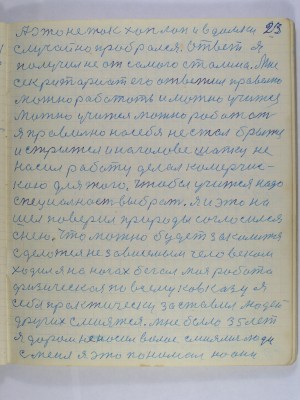 23
А это не так хоплоп и в
случайно пробрался. Ответ я
получил не от самого сталина. Мне
секретариат его ответил правельно
можно работать и можно учится
Можно учится можно работ от
я правильно на себя не стал брытся
и стрится и на голове шапку не
насил работу делал камерчис-
кою для того. Чтобы учится надо
специальност выбрат. Я и это на
шел поверил природы согласился
с нею. Что можно будет закалится
сделатся независимым человеком
ходил я на ногах бегал моя работа
физическая по всему ковказу я
себя практически заставил людей
других смиятся. мне было 35 лет
я даром не носил волос смиялис люди
с меня я это понимал но они